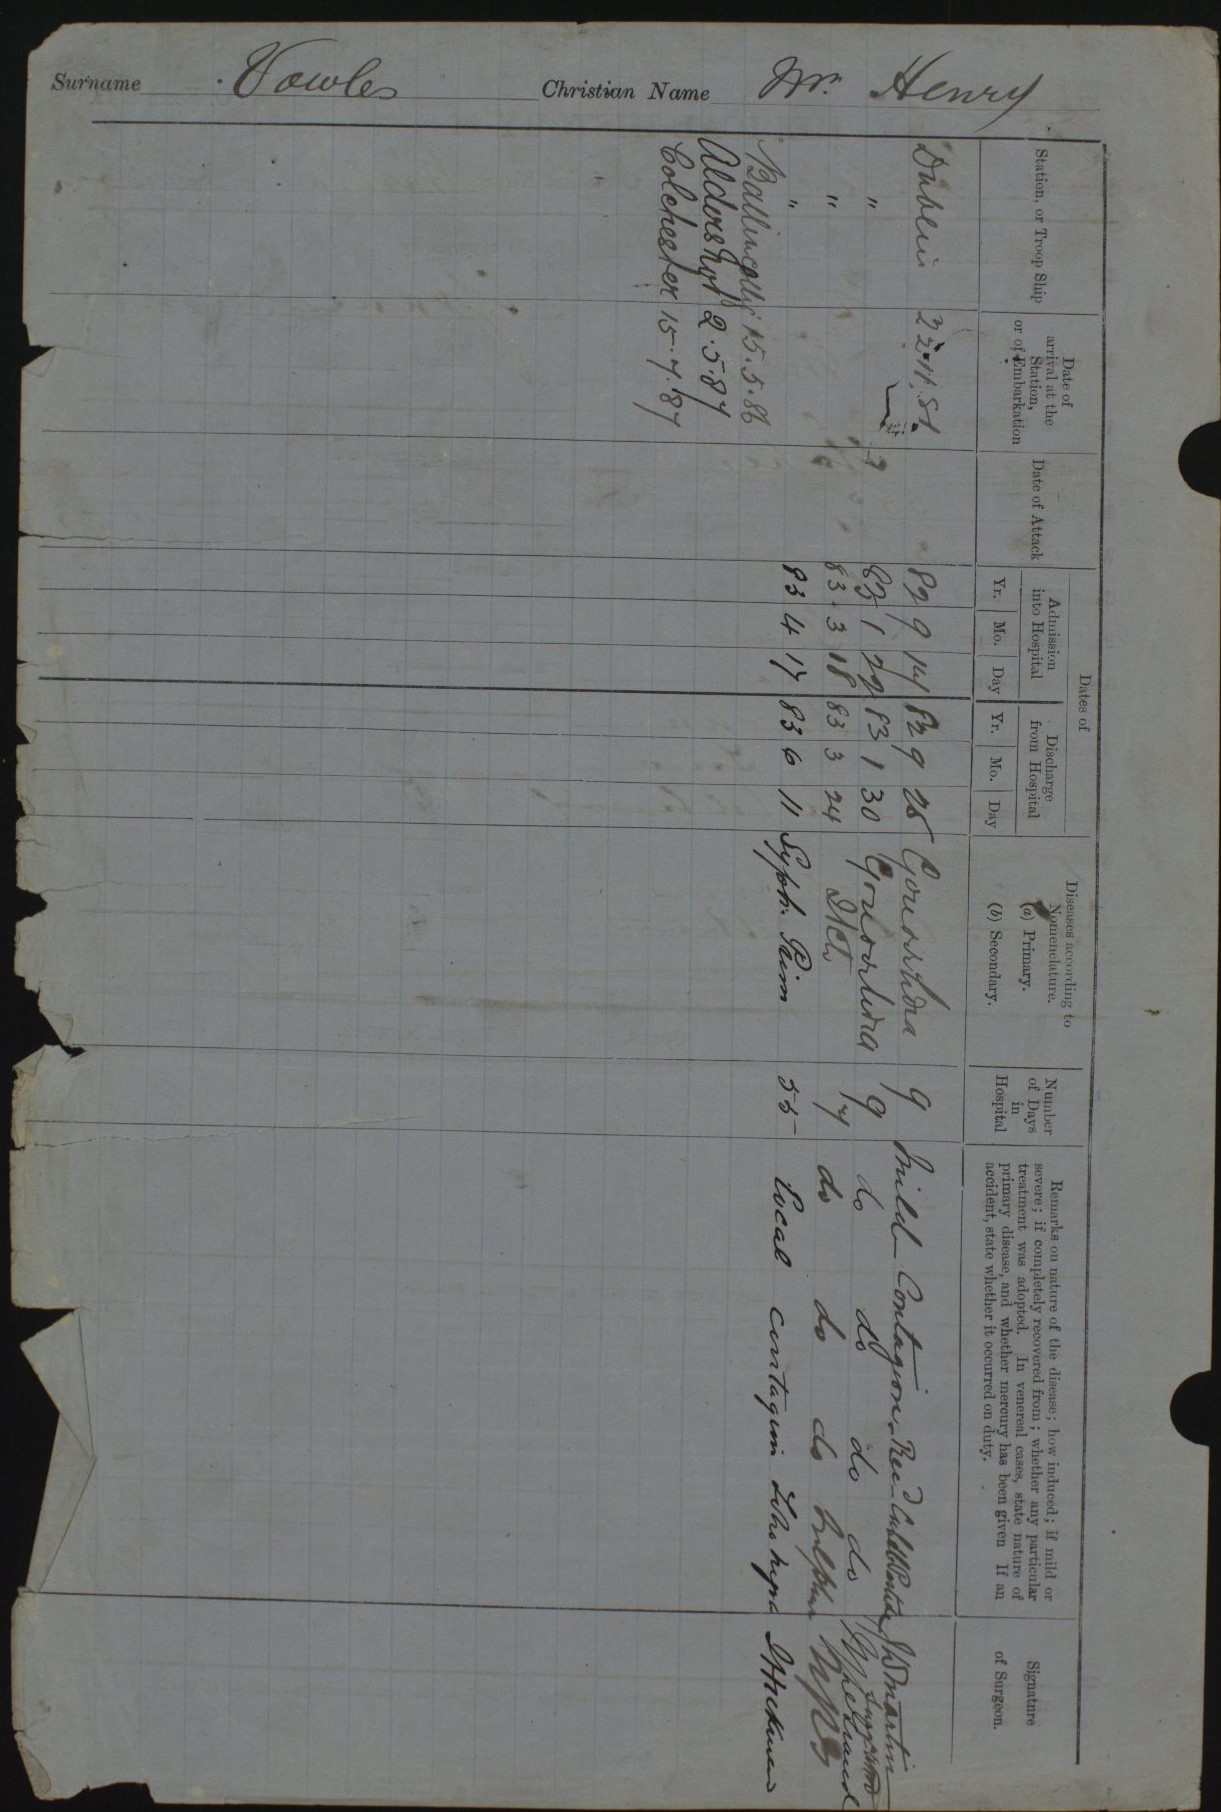 Surname Vowles Christian Name Wm. Henry
Station, or Troop Ship
Date of arrival at the Station, or of Embarkation
Dates of
Date of Attack
Admission into Hospital
Yr. Mo. Day
Discharge from Hospital
Yr. Mo. Day
Diseases according to Nomenclature.
(a) Primary.
(b) Secondary.
Number of Days in Hospital
Remarks on nature of the disease; how induced; if mild or
severe; if completely recovered from; whether any particular
treatment was adopted. In venereal cases, state nature of
primary disease, and whether mercury has been given If an
accident, state whether it occurred on duty.
Signature of Surgeon.
Dublin 82 9 82 9 Gonorrhœa 9 Mild Contagion JWMartin
" 83 1 83 1 30 Gonorrhœa 9 do do do do
" 83 3 18 83 3 24 Do 7 do do do
" 83 4 17 83 6 11 Syph. Prim 55 Local contagion
Ballincollig 15.5.86
Aldershot 2.5.87
Colchester 15.7.87